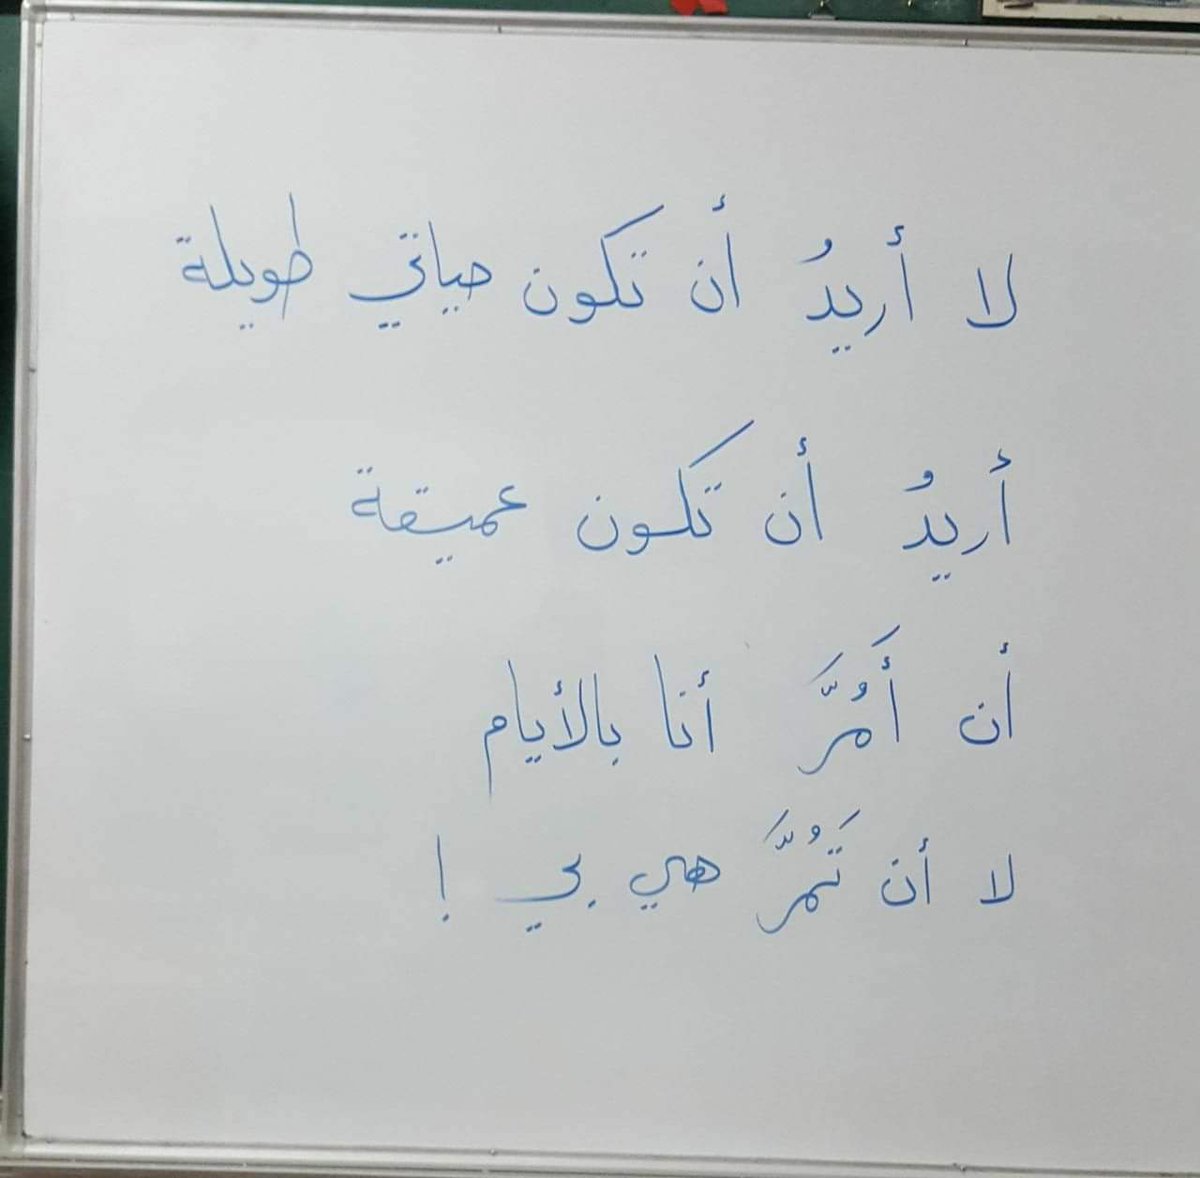 لا أريدُ أن تكون حياتي طويلة
أريدُ أن تكون عميقة
أن أَمُرَّ أنا بالأيام
لا أن تَمُرَّ هي بي !